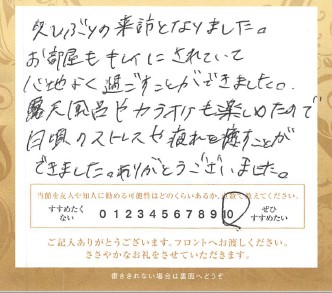 久しぶりの来訪となりました。
お部屋もキレイにされていて
心地よく過ごすことができました。
露天風呂やカラオケも楽しめたので
日頃のストレスや疲れを癒すことが
できました。ありがとうございました。
当館を友人や知人に勧める可能性はどのくらいあるか、点数で教えてください。
すすめたくない 0 1 2 3 4 5 6 7 8 9 10 ぜひすすめたい
ご記入ありがとうございます。フロントへお渡しください。
ささやかなお礼をさせていただきます。
書ききれない場合は裏面へどうぞ